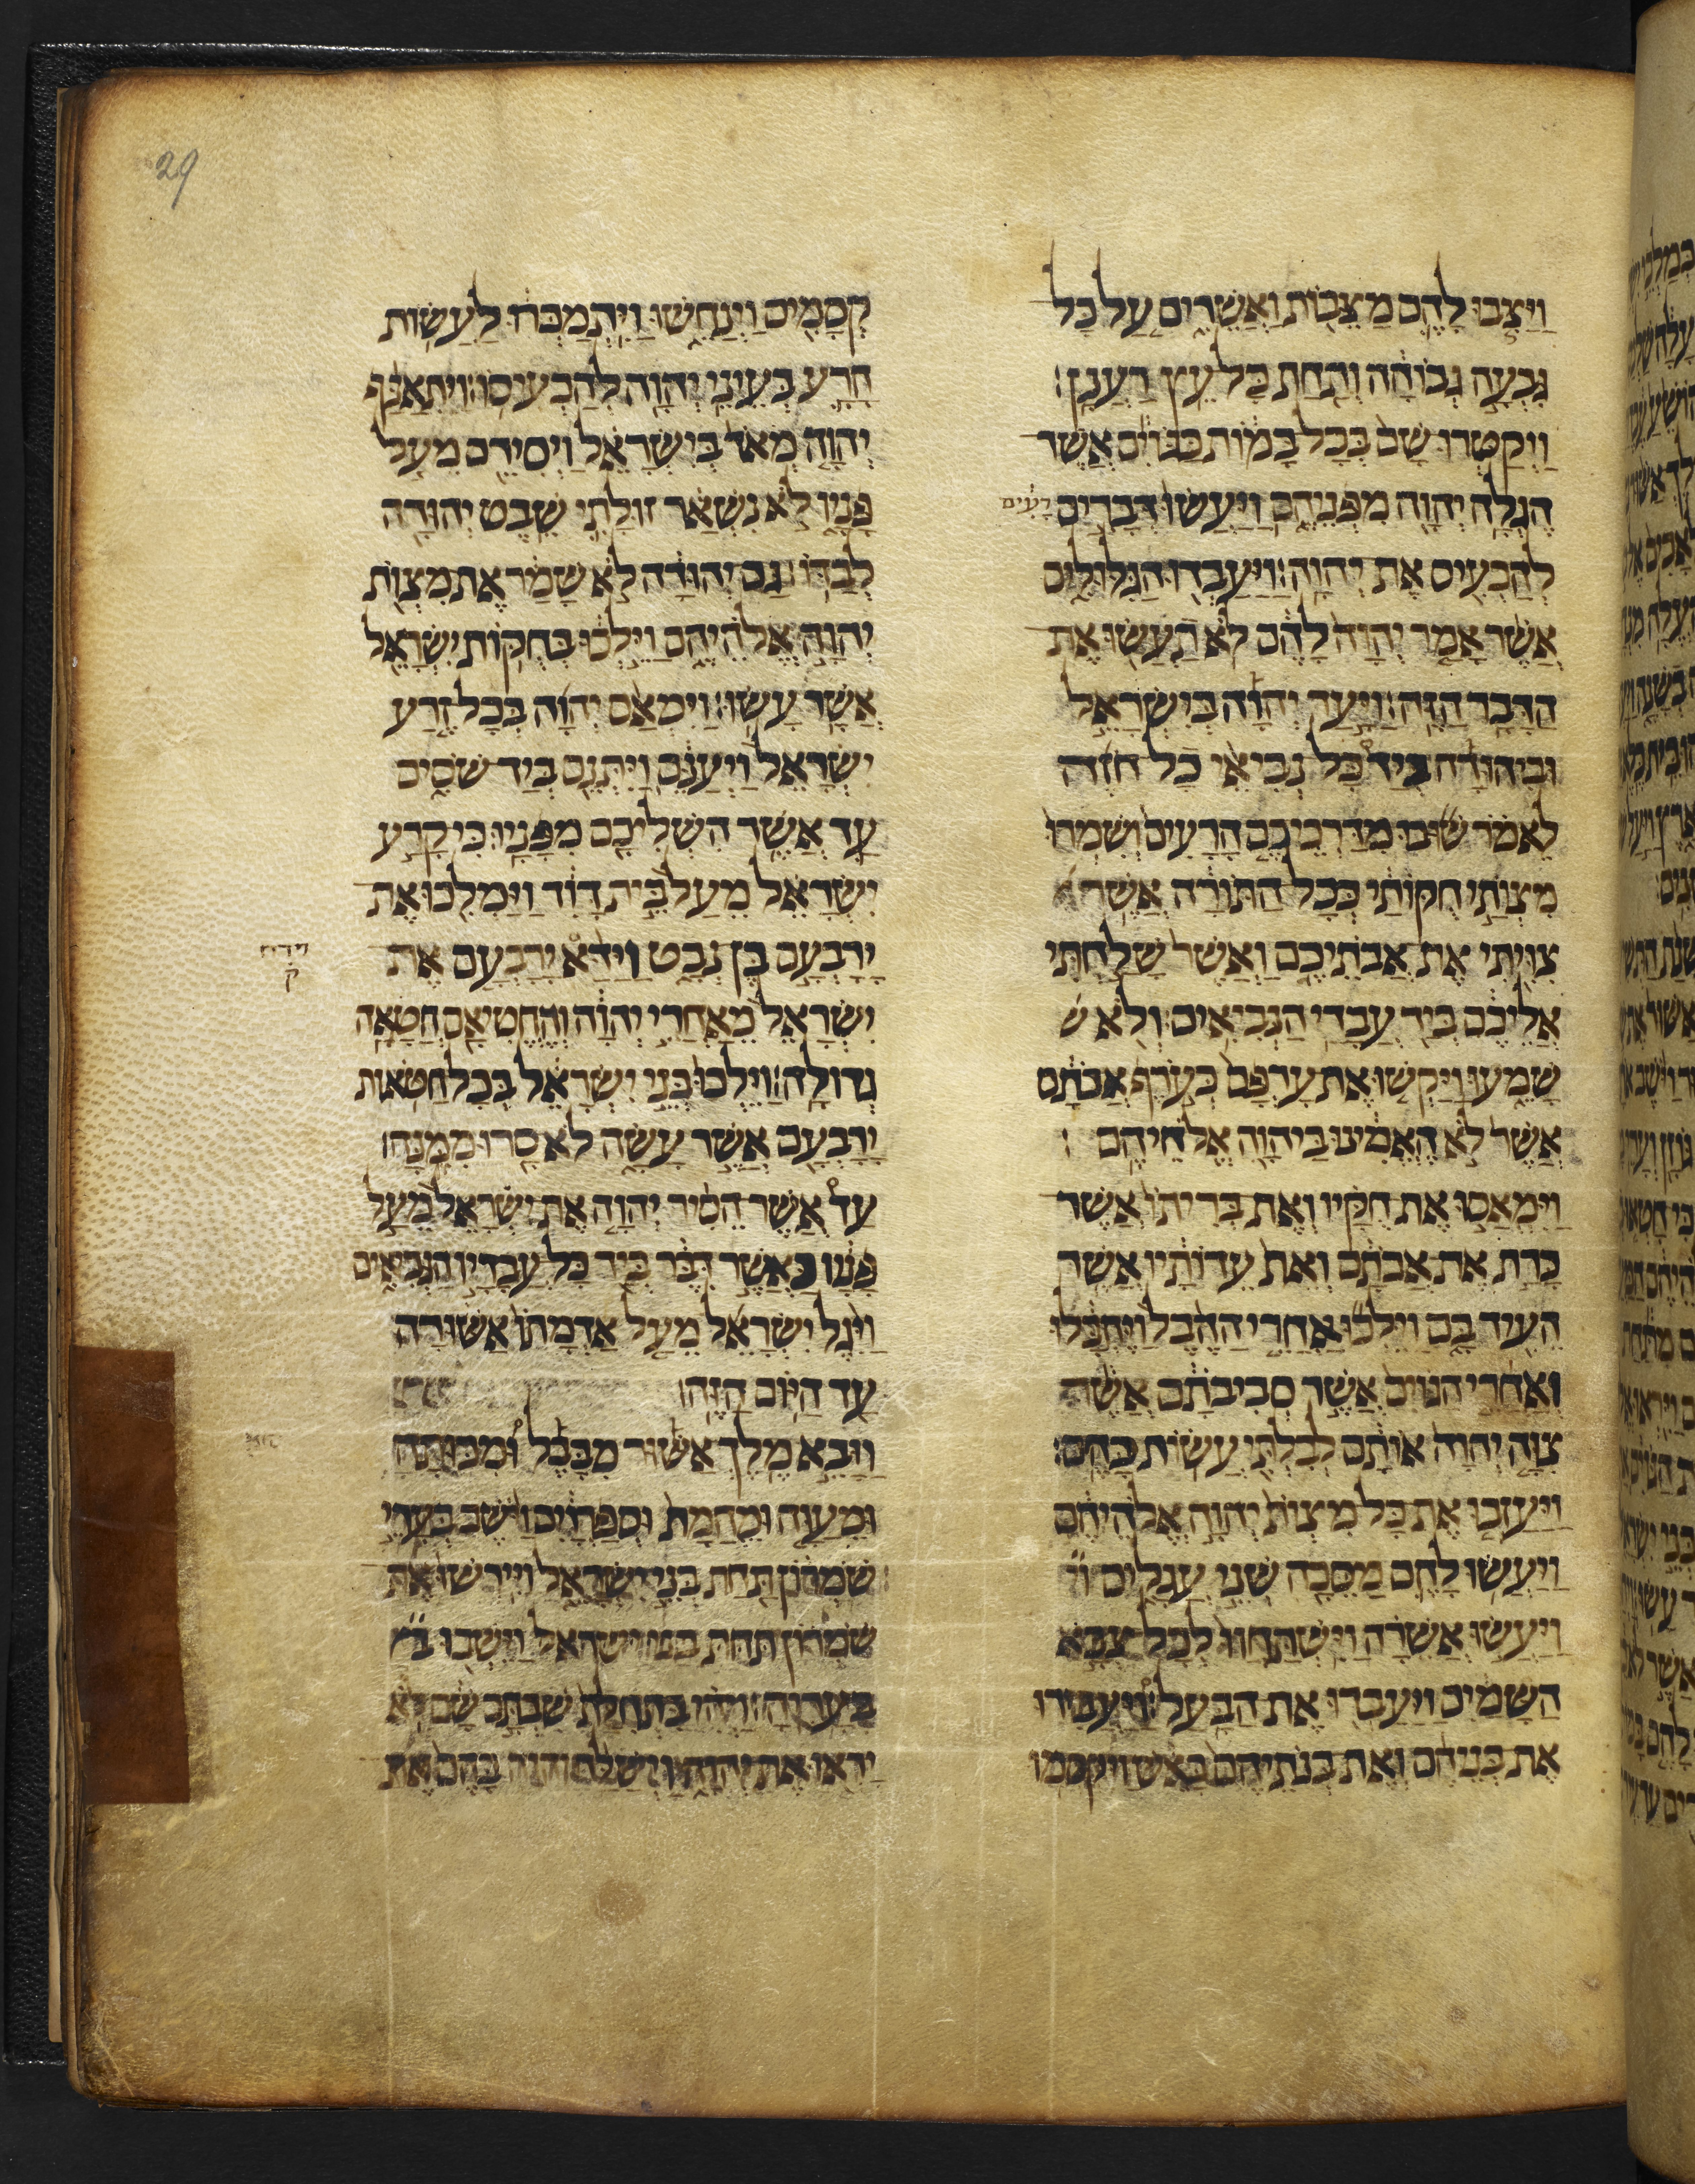 29
ויצבו להם מצבות ואשרים על כל
גבעה גבוהה ותחת כל עץ רענן׃
ויקטרו שם בכל במות כגוים אשר
הגלה יהוה מפניהם ויעשו דברים רעים
להכעיס את יהוה׃ ויעבדו הגלולים
אשר אמר יהוה להם לא תעשו את
הדבר הזה׃ ויעד יהוה בישראל
וביהודה ביד כל נביאי כל חזה
לאמר שובו מדרכיכם הרעים ושמרו
מצותי חקותי ככל התורה אשר
צויתי את אבתיכם ואשר שלחתי
אליכם ביד עבדי הנביאים׃ ולא ש
שמעו ויקשו את ערפם כערף אבתם
אשר לא האמינו ביהוה אלהיהם׃
וימאסו את חקיו ואת בריתו אשר
כרת את אבתם ואת עדותיו אשר
העיד בם וילכו אחרי ההבל ויהבלו
ואחרי הגוים אשר סביבתם אשר
צוה יהוה אותם לבלתי עשות כהם׃
ויעזבו את כל מצות יהוה אלהיהם
ויעשו להם מסכה שני עגלים וי
ויעשו אשרה וישתחוו לכל צבא
השמים ויעבדו את הבעל׃ ויעבירו
את בניהם ואת בנתיהם באש ויקסמו
קסמים וינחשו ויתמכרו לעשות
הרע בעיני יהוה להכעיסו׃ ויתאנף
יהוה מאד בישראל ויסירם מעל
פניו לא נשאר זולתי שבט יהודה
לבדו׃ גם יהודה לא שמר את מצות
יהוה אלהיהם וילכו בחקות ישראל
אשר עשו׃ וימאס יהוה בכל זרע
ישראל ויענם ויתנם ביד שסים
עד אשר השליכם מפניו׃ כי קרע
ישראל מעל בית דוד וימליכו את
ירבעם בן נבט וידא ירבעם את
וידח
ק
ישראל מאחרי יהוה והחטיאם חטאה
גדולה׃ וילכו בני ישראל בכל חטאות
ירבעם אשר עשה לא סרו ממנה׃
עד אשר הסיר יהוה את ישראל מעל
פניו כאשר דבר ביד כל עבדיו הנביאים
ויגל ישראל מעל אדמתו אשורה
עד היום הזה׃
ויבא מלך אשור מבבל ומכותה
ומעוה ומחמת וספרוים וישב בערי
שמרון תחת בני ישראל וירשו את
שמרון תחת בני ישראל וישבו ב
בעריה׃ ויהי בתחלת שבתם שם לא
יראו את יהוה וישלח יהוה בהם את